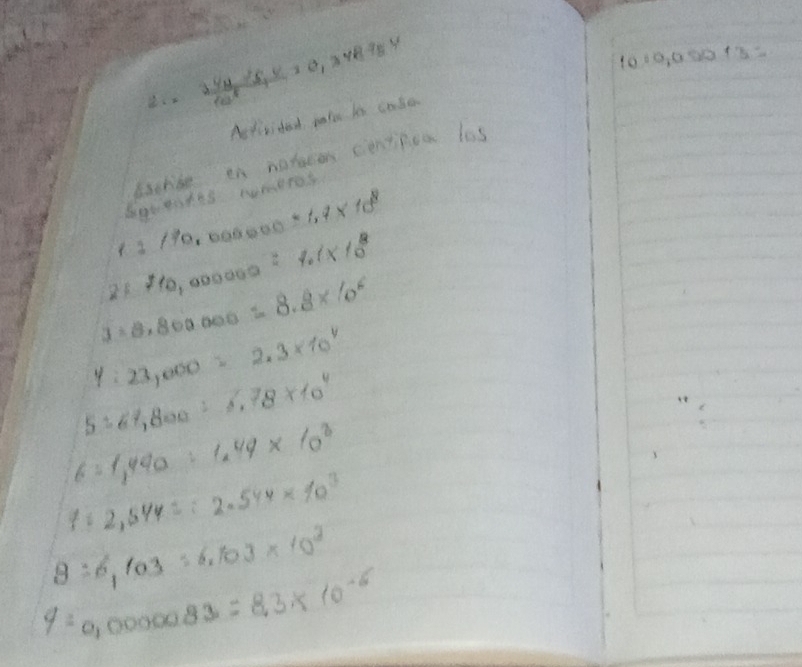 Actividad para la casa
Escribe en notacion cientifica los
siguientes numeros
1 = 170,000000 = 1,7 × 10⁸
2 = 710,000000 = 7.1 × 10⁸
3 = 8.800000 = 8.8 × 10⁶
4 = 23,000 = 2.3 × 10⁴
5 = 67,800 = 6.78 × 10⁴
6 = 1,490 = 1.49 × 10³
7 = 2,544 = = 2.544 × 10³
8 = 6,103 = 6.103 × 10³
9 = 0,0000083 = 8,3 × 10⁻⁶
10 = 0,00013 =